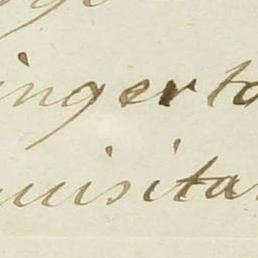 ingerto
uisita